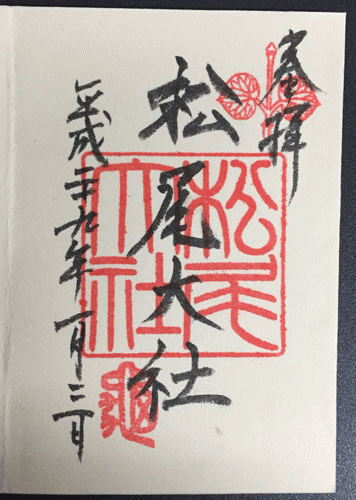 奉拝
松尾大社
松尾大社
亀
平成二十九年一月三日